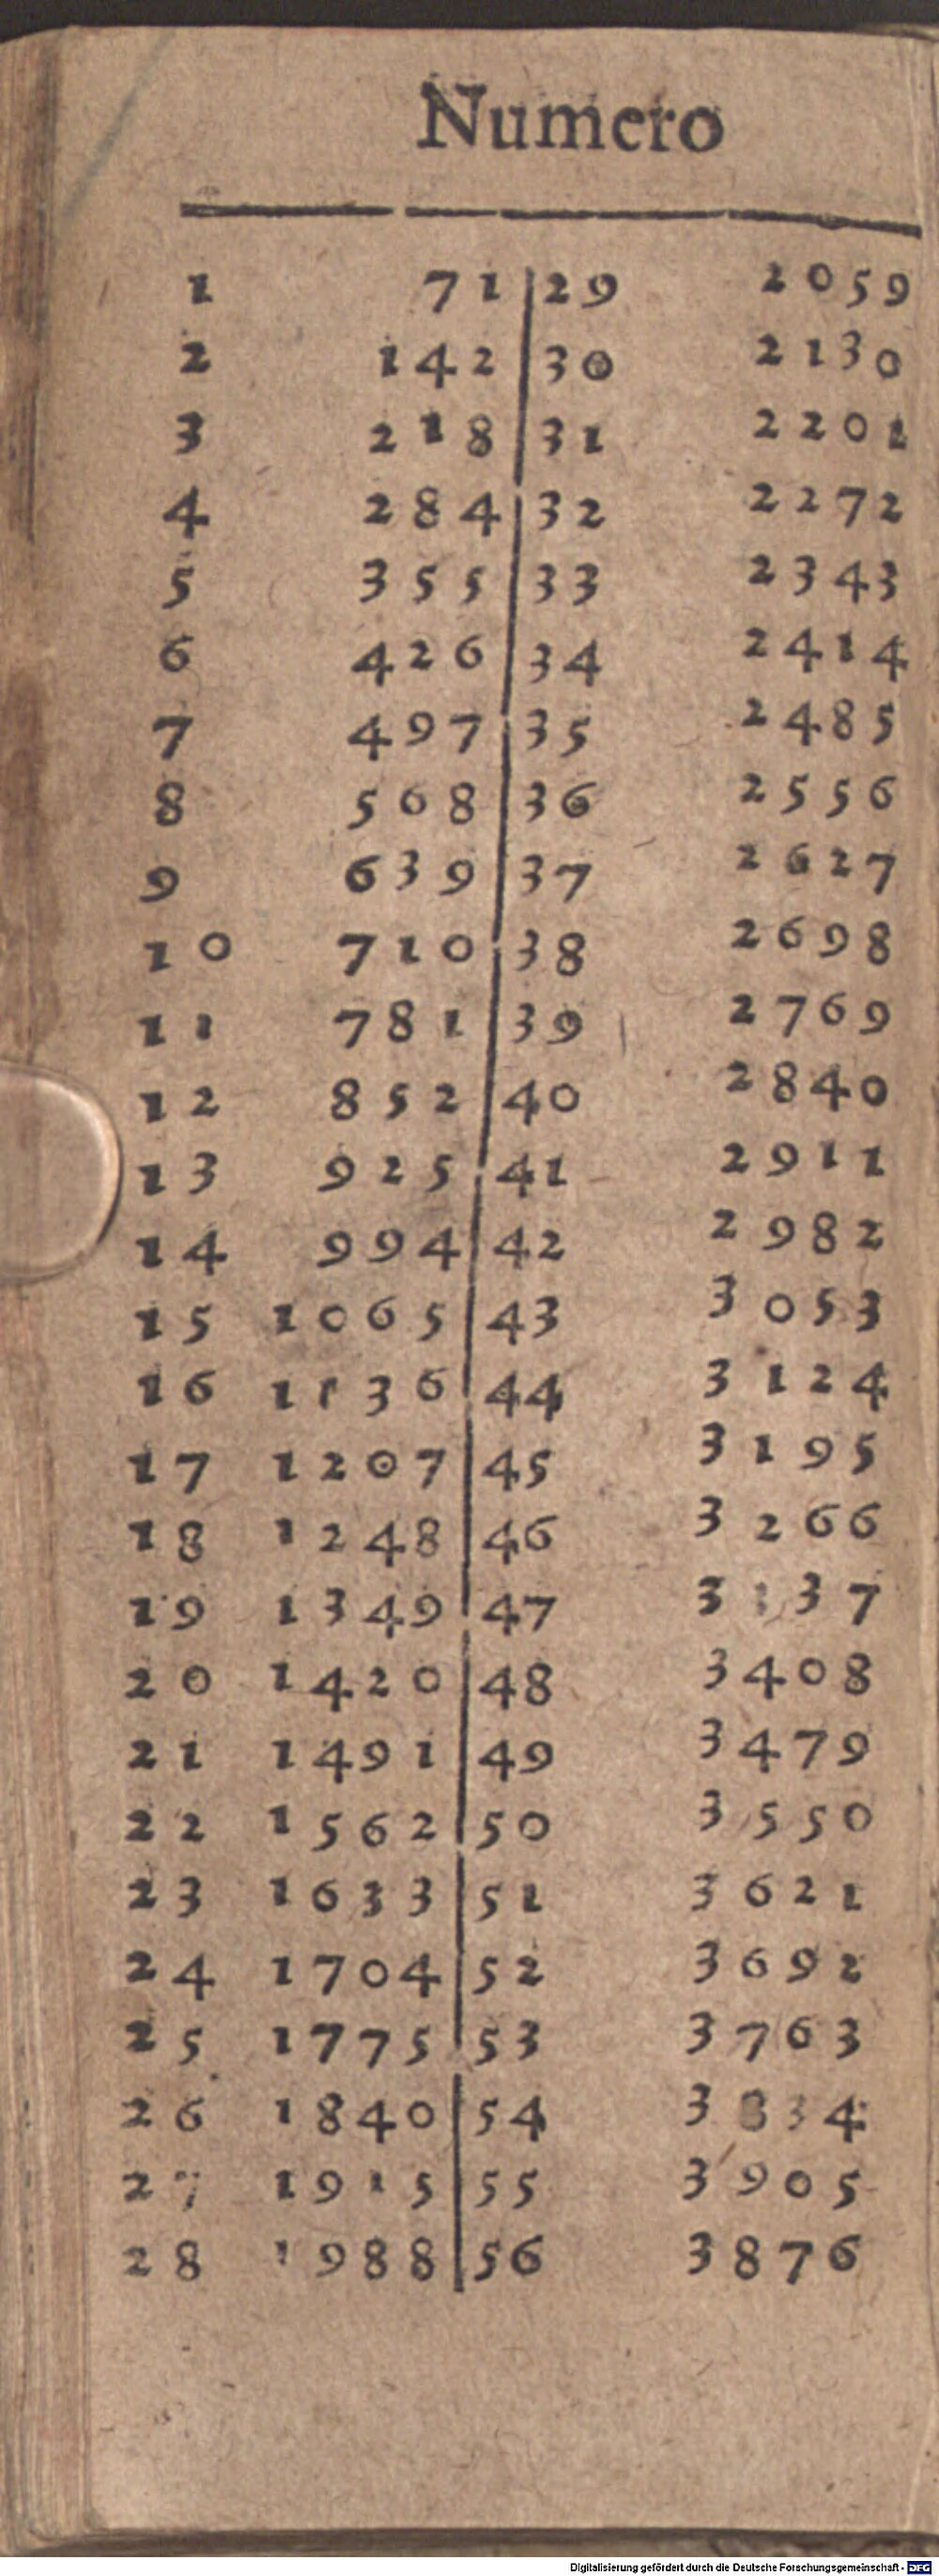 Numero
1 71 29 2059
2 142 30 2130
3 218 31 2201
4 284 32 2272
5 355 33 2343
6 426 34 2414
7 497 35 2485
8 568 36 2556
9 639 37 2627
10 710 38 2698
11 781 39 2769
12 852 40 2840
13 925 41 2911
14 994 42 2982
15 1065 43 3053
16 1136 44 3124
17 1207 45 3195
18 1248 46 3266
19 1349 47
20 1420 48 3408
21 1491 49 3479
22 1562 50 3550
23 1633 51 3621
24 1704 52 3692
25 1775 53 3763
26 1840 54 3834
27 1915 55 3905
28 1988 56 3876
Digitalisierung gefördert durch die Deutsche Forschungsgemeinschaft - DFG